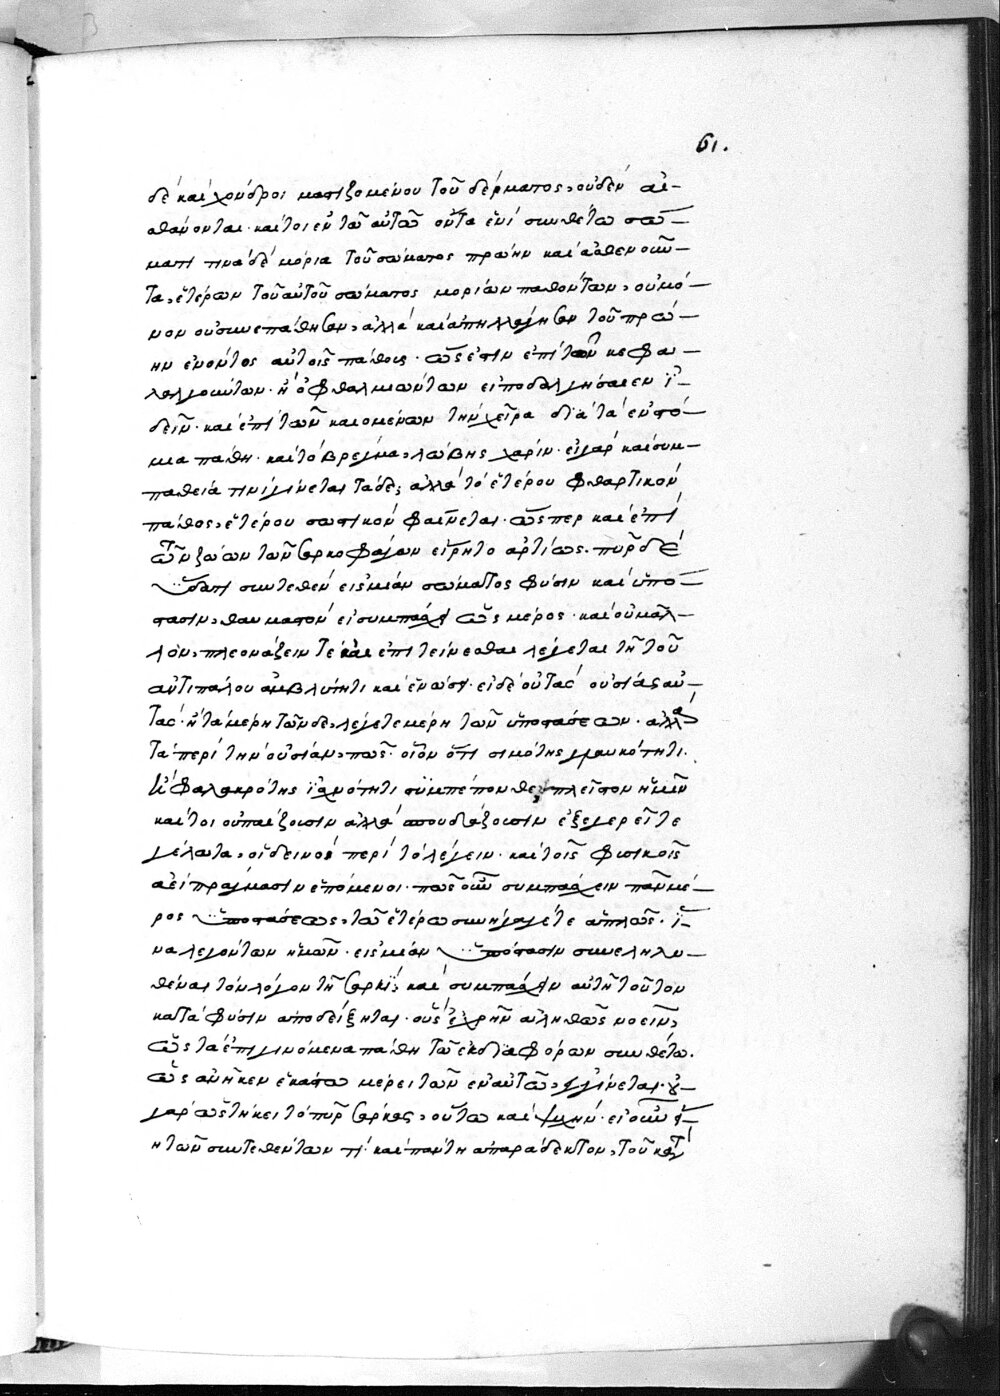 61.
δὲ καὶ χόνδροι μαστιζομένου τοῦ δέρματος, οὐδὲν αἰ-
σθάνονται· καίτοι ἐν τῶ αὐτῶ ὄντα ἑνὶ συνθέτω σώ-
ματι τινὰ δὲ μόρια τοῦ σώματος πρώην καὶ ἀσθενοῦν-
τα, ἑτέρων τοῦ αὐτοῦ σώματος μορίων παθόντων, οὐ μό-
νον οὐ συνεπάθησαν, ἀλλὰ καὶ ἀπηλλάγησαν τοῦ πρώ-
ην ἐνόντος αὐτοῖς πάθους· ὥς ἐστιν ἐπὶ τῶν κεφα-
λαλγούντων· ἢ ὀφθαλμιώντων εἰ ποδαλγήσαιεν ἰ-
δεῖν· καὶ ἐπὶ τῶν καιομένων τὴν χεῖρα διὰ τὰ ἐν στό-
μια πάθη· καὶ τὸ βρέγμα, λώβης χάριν· εἰ γὰρ καὶ συμ-
παθεία τινὶ γίνεται τάδε, ἀλλὰ τὸ ἑτέρου φθαρτικὸν
πάθος, ἑτέρου σωστικὸν φαίνεται· ὥσπερ καὶ ἐπὶ
τῶν ζώων τῶν σαρκοφάγων εἴρητο ἀρτίως. πῦρ δὲ
ὕδατι συντεθὲν εἰς μίαν σώματος φύσιν καὶ ὑπό-
στασιν, θαυμαστὸν εἰ συμπάσχει ὡς μέρος· καὶ οὐ μᾶλ-
λον, πλεονάζειν τε καὶ ἐπιτείνεσθαι λέγεται τῆ τοῦ
ἀντιπάλου ἀμβλύτητι καὶ ἑνώσει· εἰ δὲ οὐ τὰς οὐσίας αὐ-
τάς· ἢ τὰ μέρη τῶνδε, λέγετε μέρη τῶν ὑποστάσεων· ἀλλὰ
τὰ περὶ τὴν οὐσίαν, πῶς· οἷον ὅτι σιμότης γλαυκότητι.
ἢ φαλακρότης ἰσχνότητι συμπέπονθε, πλεῖστον ἡμῖν
καίτοι οὐ παίζουσιν ἀλλὰ σπουδάζουσιν ἐξεγερεῖτε
γέλωτα, οἱ δεινοὶ περὶ τὸ λέγειν· καὶ τοῖς φυσικοῖς
ἀεὶ πράγμασιν ἑπόμενοι· πῶς οὖν συμπάσχειν πᾶν μέ-
ρος ὑποστάσεως, τῶ ἑτέρω συνηγάγετε ἁπλῶς· ἵ-
να λεγόντων ἡμῶν· εἰς μίαν ὑπόστασιν συνεληλυ-
θέναι τὸν λόγον τῆ σαρκὶ, καὶ συμπάσχειν αὐτῆ τοῦτον
κατὰ φύσιν ἀποδείξηται· οὓς ἐχρῆν ἀληθῶς νοεῖν,
ὡς τὰ ἐπιγινόμενα πάθη τῶ ἐκ διαφόρων συνθέτω.
ὡς ἀνῆκεν ἑκάστω μέρει τῶν ἐν αὐτῶ, γίνεται· οὐ
γὰρ ὡς τήκει τὸ πῦρ σάρκας, οὕτω καὶ ψυχήν· εἰ οὖν ἔ-
η τῶν συντεθέντων τί· καὶ πάντη ἀπαράδεκτον, τοῦ κατὰ